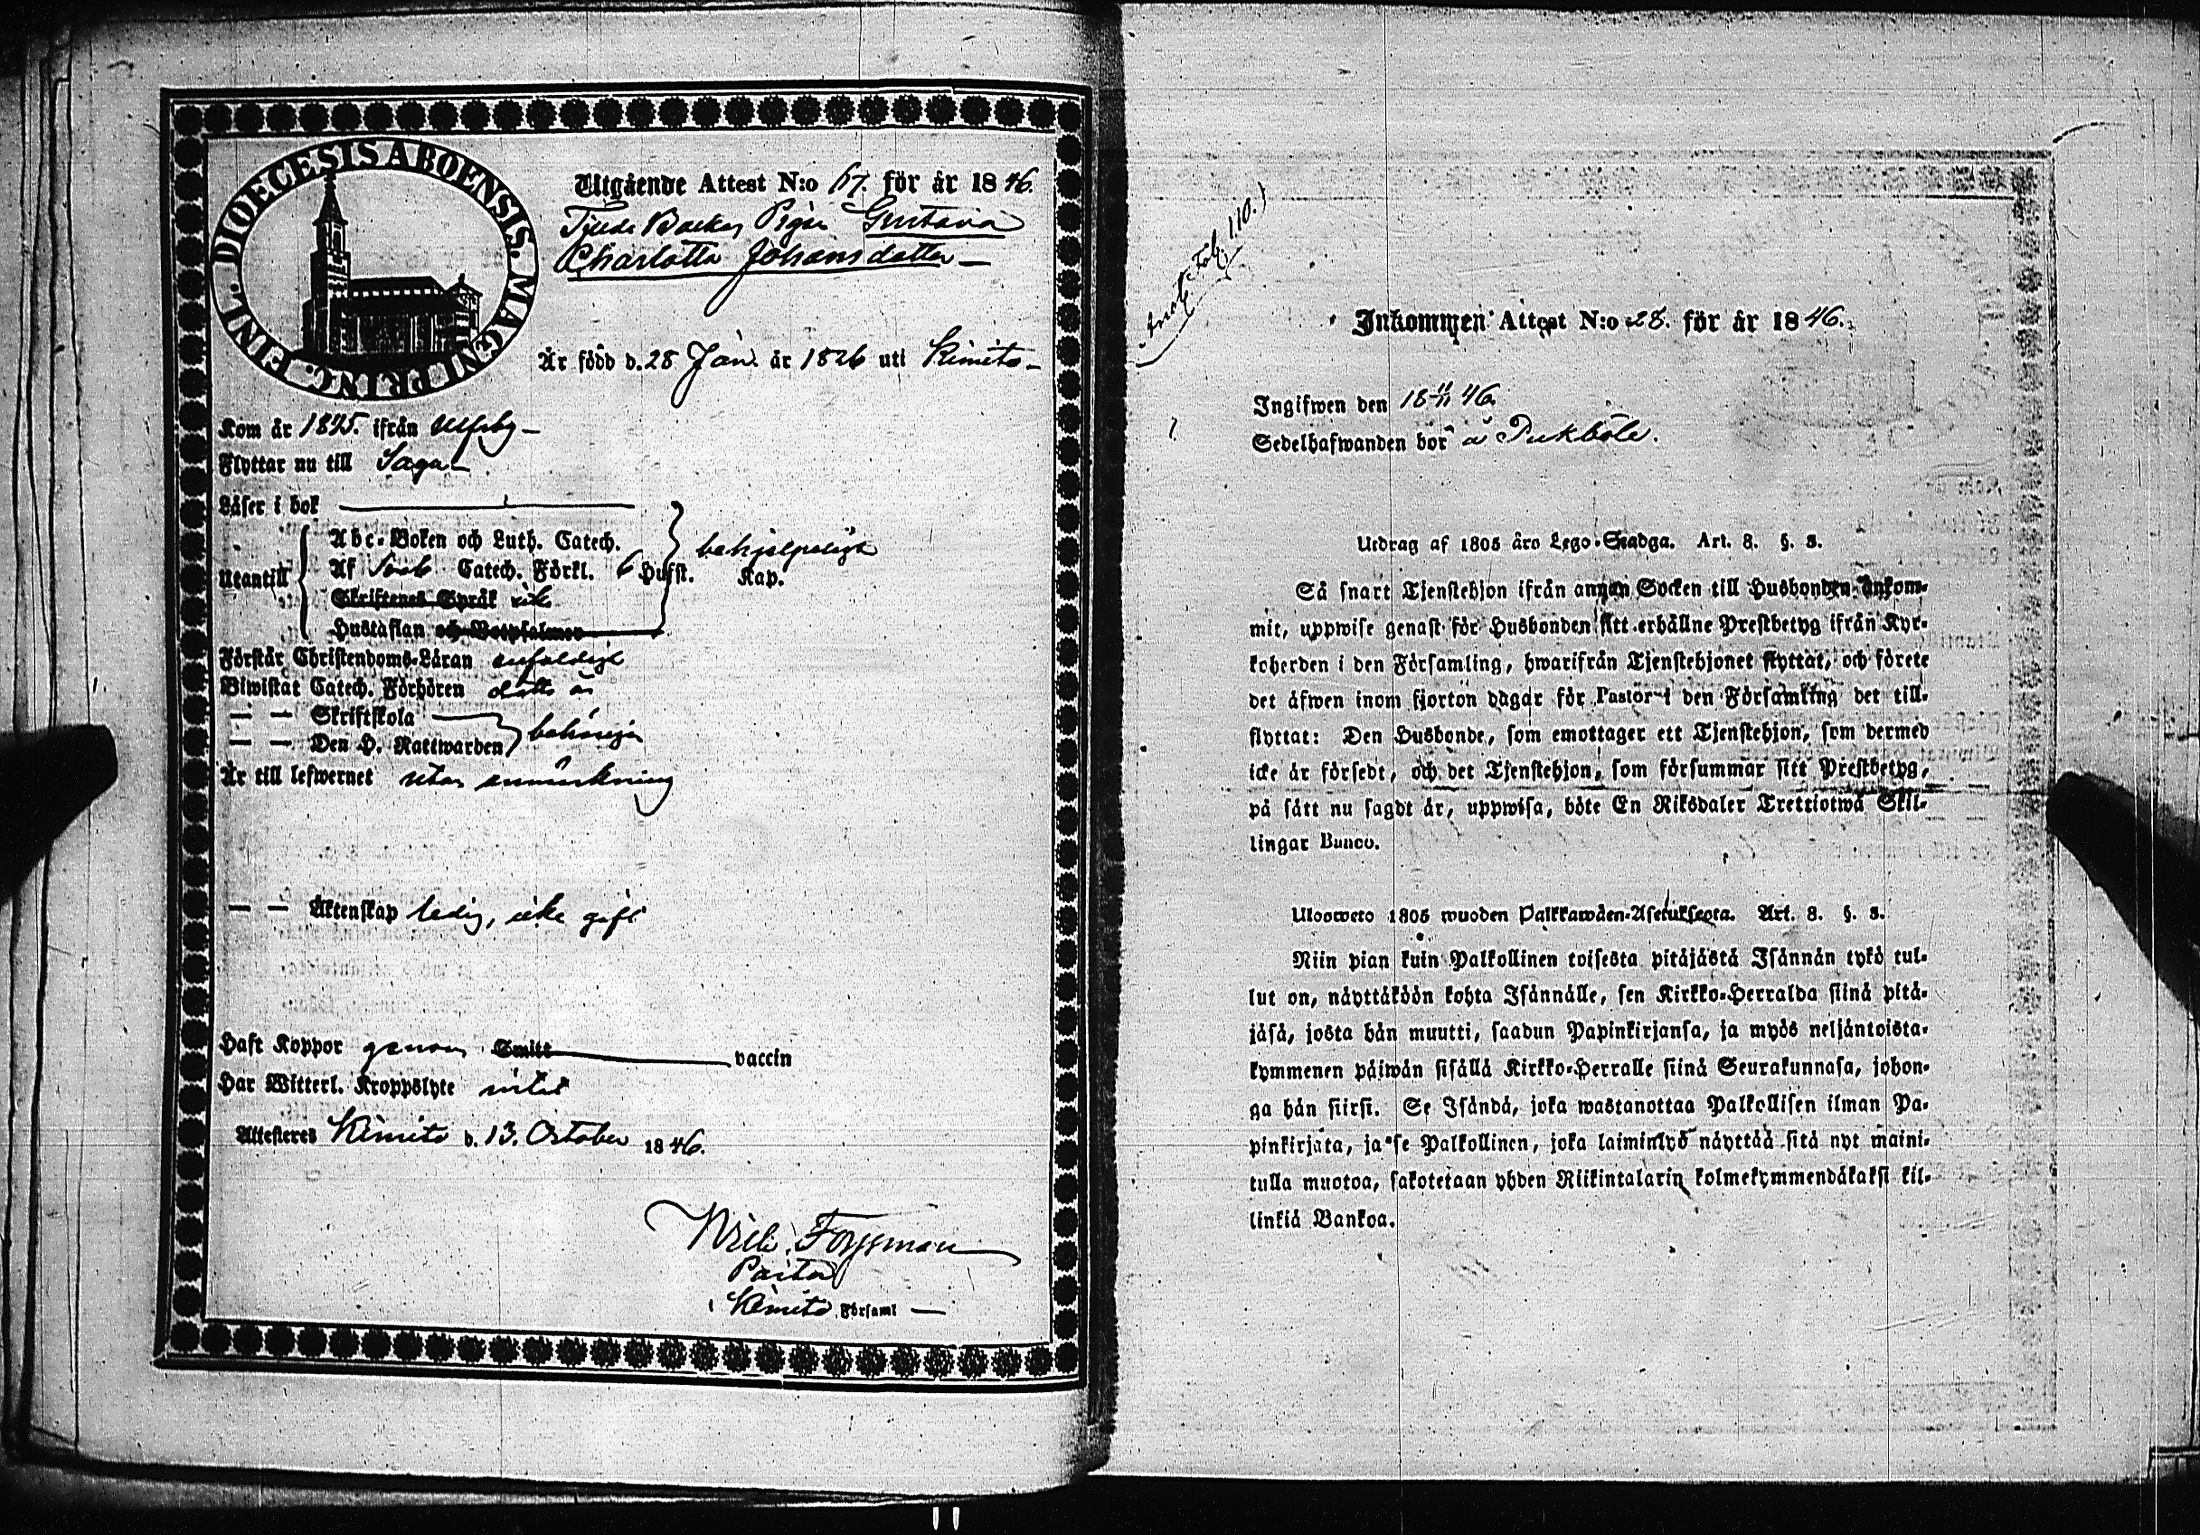 DIOECESIS ABOENSIS. MAGNI PRINC. FINL.
Utgående Attest N:o 67. för år 1846.
Tjude Backas Pigan Gustava
Charlotta Johansdotter
Är född d. 28 Jan. år 1826 uti Kimito
Kom år 1845. ifrån
Flyttar nu till Sagu
Läser i bok
Utantill
Abc-Boken och Luth. Catech.
behjelpeligt
Af Sveb Catech. Förkl. 6 Hufst. Kap.
Skriftenes Språk icke
Hustaflan och Botpsalmen
Förstår Christendoms-Läran enfaldigt
Biwistat Catech. Förhören detta år
— — Skriftskola
— — Den H. Nattwarden behörigen
Är till lefwernet utan anmärkning
— — Äktenskap ledig, icke gift
Haft Koppor genom Smitt vaccin
Har Witterl. Kroppslyte intet
Attesteres Kimito d. 13. October 1846.
Wilh. Forssman
Pastor
i Kimito Församl
Annot. Fol. 110.)
Inkommen Attest N:o 28. för år 1846.
Ingifwen den 18 46.
Sedelhafwanden bor å Pukböle.
Utdrag af 1805 års Lego-Stadga. Art. 8. §. 3.
Så snart Tjenstehjon ifrån annan Socken till Husbonden ankom-
mit, uppwise genast för Husbonden sitt erhållne Prestbetyg ifrån Kyr-
koherden i den Församling, hwarifrån Tjenstehjonet flyttat, och förete
det äfwen inom fjorton dagar för Pastor i den Församling det till-
flyttat: Den Husbonde, som emottager ett Tjenstehjon, som dermed
icke är försedt, och det Tjenstehjon, som försummar sitt Prestbetyg,
på sätt nu sagdt är, uppwisa, böte En Riksdaler Trettiotwå Skil-
lingar Banco.
Ulosweto 1805 wuoden Palkkawäen-Asetuksesta. Art. 8. §. 3.
Niin pian kuin Palkollinen toisesta pitäjästä Isännän tykö tul-
lut on, näyttäköön kohta Isännälle, sen Kirkko-Herralda siinä pitä-
jäsä, josta hän muutti, saadun Papinkirjansa, ja myös neljäntoista-
kymmenen päiwän sisällä Kirkko-Herralle siinä Seurakunnasa, johon-
ga hän siirsi. Se Isändä, joka wastanottaa Palkollisen ilman Pa-
pinkirjata, ja se Palkollinen, joka laiminlyö näyttää sitä nyt maini-
tulla muotoa, sakotetaan yhden Riikintalarin kolmekymmendäkaksi kil-
linkiä Bankoa.